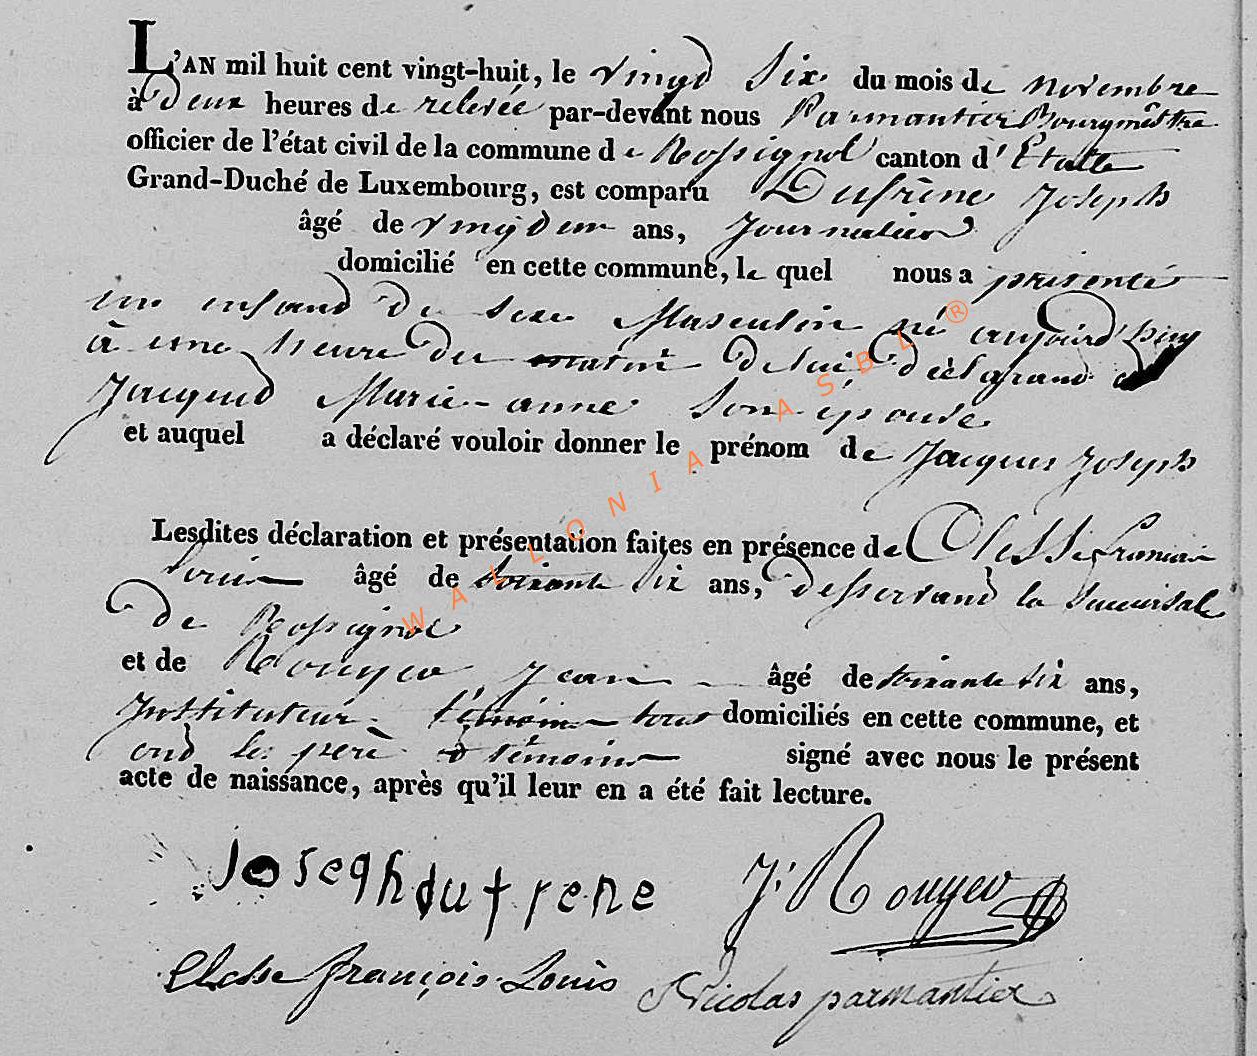 L'AN mil huit cent vingt-huit, le vingd Six du mois de novembre
à deux heures de relevée par-devant nous Parmantier Bourgmêstre
officier de l'état civil de la commune de Rossignol canton d'Etalle
Grand-Duché de Luxembourg, est comparu Dufrêne Joseph
âgé de vingdeux ans, Journalier
domicilié en cette commune, le quel nous a présenté
un enfand du Sexe Masculin né aujourd'huy
à une heure du matin de lui déclarand
Jacqued Marie-anne Son épouse
et auquel a déclaré vouloir donner le prénom de Jacques Joseph
Lesdites déclaration et présentation faites en présence de Clesse francois
Louis âgé de Soixante Six ans, desservand la Succursale
de Rossignol
et de Rougeo Jean âgé de Soixante Six ans,
Instituteur témoins tous domiciliés en cette commune, et
ond le père & témoins signé avec nous le présent
acte de naissance, après qu'il leur en a été fait lecture.
Joseph dufrene J. Rougeo
Clesse françois Louis Nicolas parmantier
WALLONIA ASBL ®